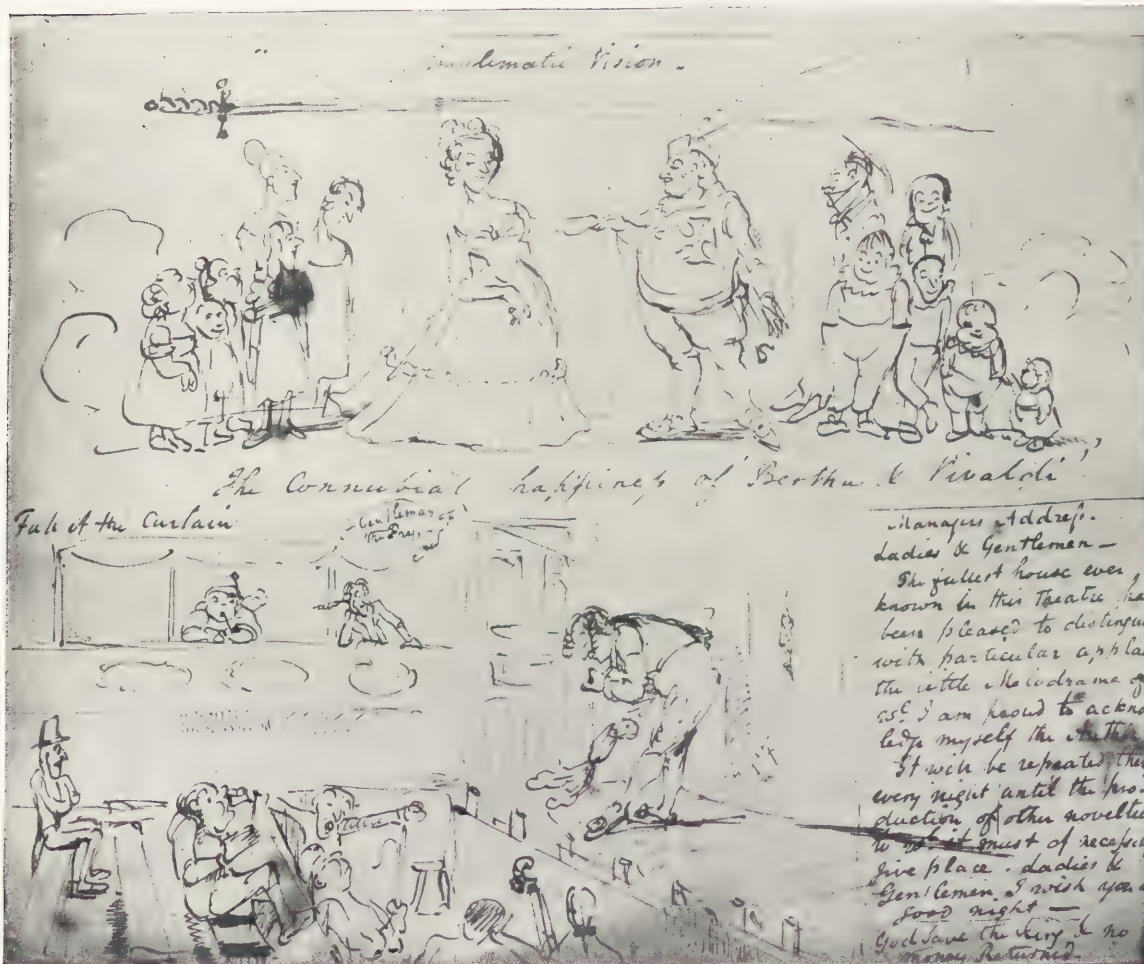 Vision.
The Connubial happiness of Bertha & Vivaldi!
Fall of the Curtain
Gentleman of
the Press
Managers Address.
Ladies & Gentlemen —
The fullest house ever
known in this Theatre, ha
been pleased to distingui
with particular appla
the little Melodrama of
I am proud to ackno
ledge myself the Author
It will be repeated, then
every night until the pro-
duction of other novelties
to it must of necessi
give place. Ladies &
Gentlemen, I wish you a
good night —
God save the King & no
money Returned.